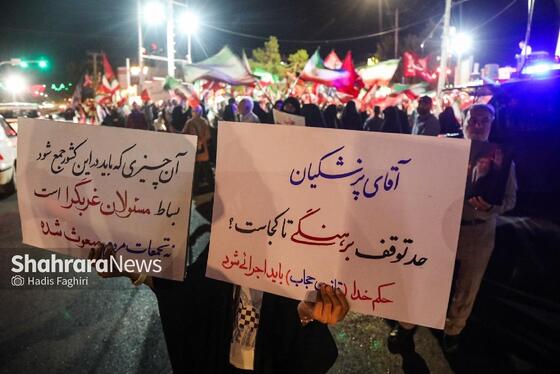 آن چیزی که باید در این کشور جمع شود
بساط مسئولان غربگرا است
نه تجمعات مردم مبعوث شده
آقای پزشکیان
حد توقف برهنگی تا کجاست؟
حکم خدا (قانون حجاب) باید اجرائی شود
ShahraraNews
Hadis Faghiri